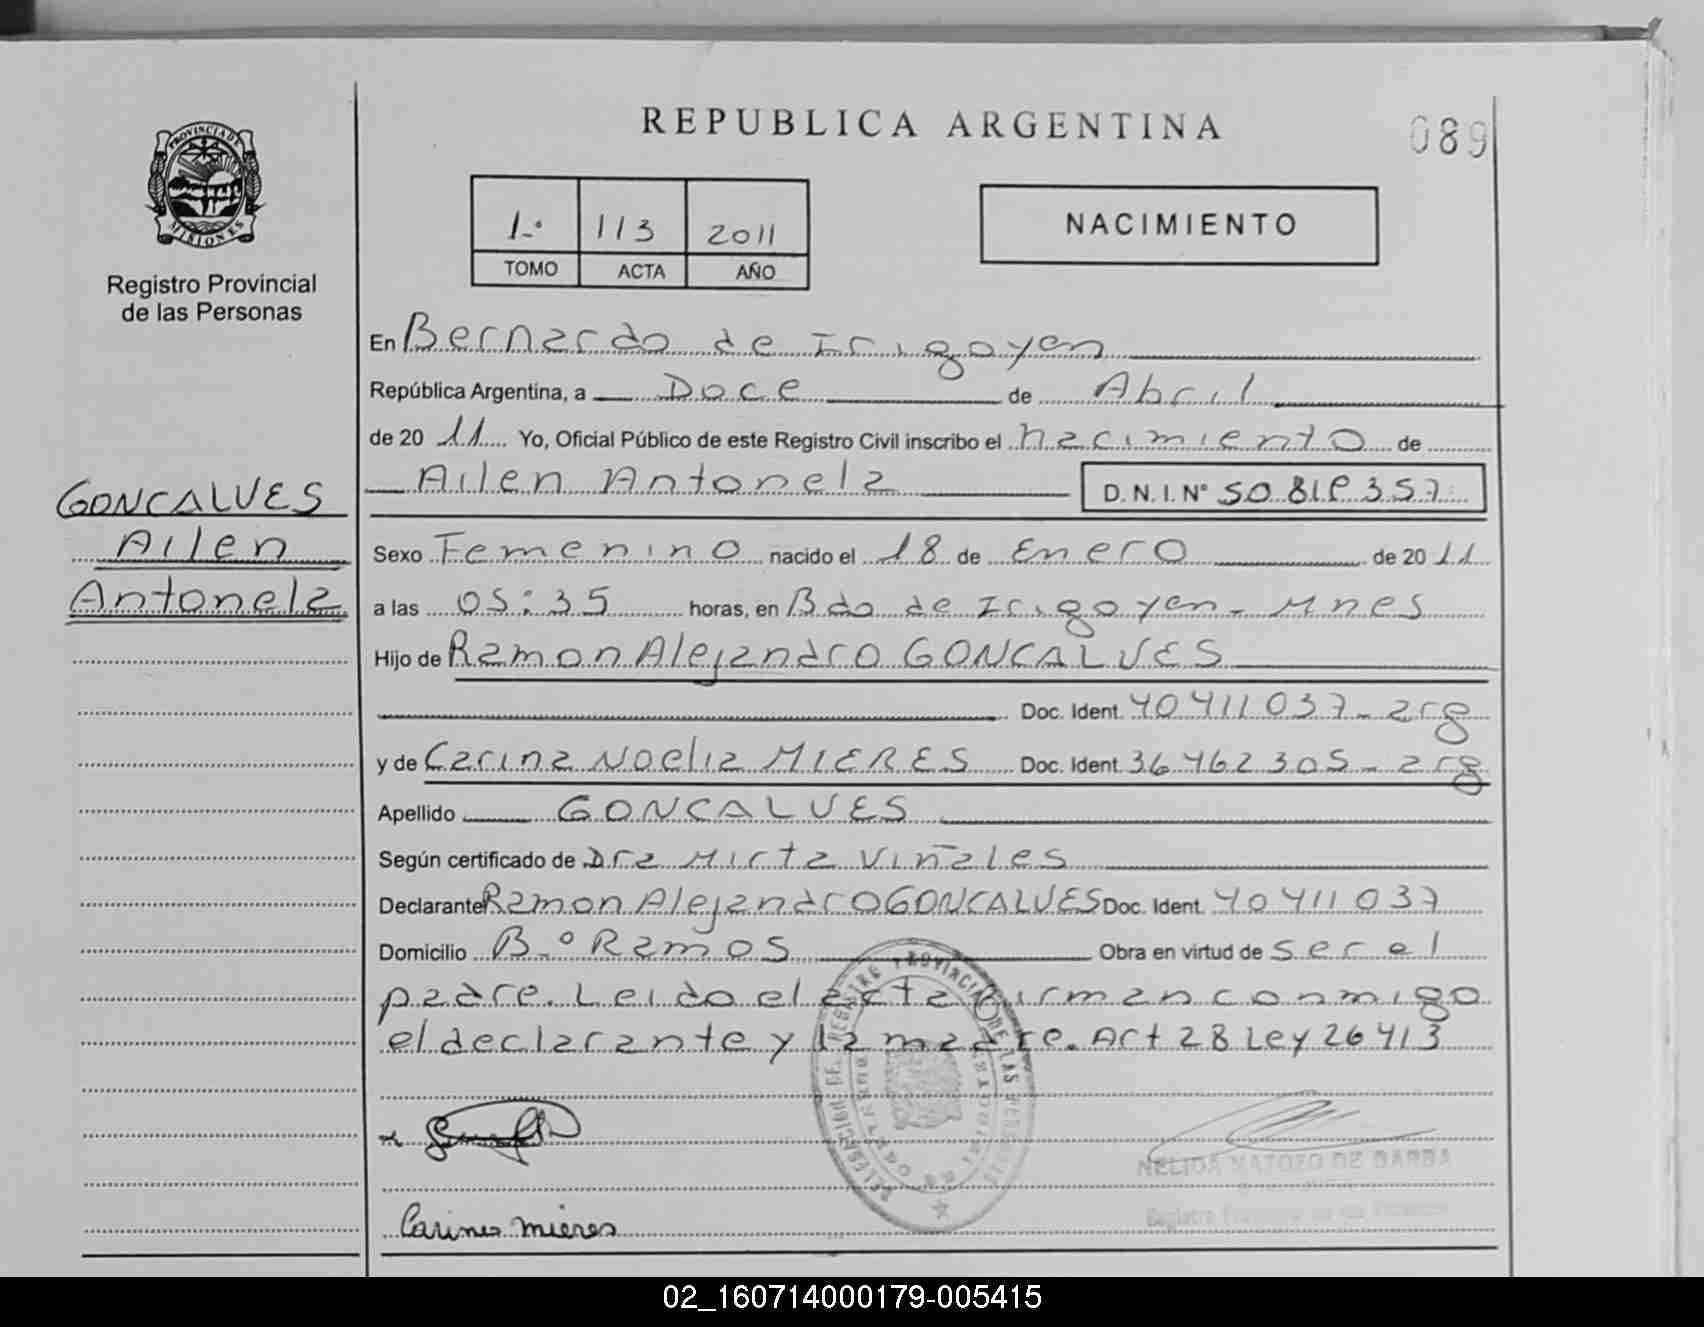 REPUBLICA ARGENTINA
089
PROVINCIA DE MISIONES
Registro Provincial
de las Personas
1.º 113 2011
TOMO ACTA AÑO
NACIMIENTO
En Bernardo de Irigoyen
República Argentina, a Doce de Abril
de 2011 Yo, Oficial Público de este Registro Civil inscribo el nacimiento de
Ailen Antonela D.N.I.Nº 50.818.357
GONCALVES
Ailen
Antonela
Sexo Femenino nacido el 18 de Enero de 2011
a las 05:35 horas, en Bdo de Irigoyen - Mnes
Hijo de Ramon Alejandro GONCALVES
Doc. Ident. 40411037 - arg
y de Carina Noelia MIERES Doc. Ident. 36462305 - arg
Apellido GONCALVES
Según certificado de Dra Mirta Viñales
Declarante Ramon Alejandro GONCALVES Doc. Ident. 40411037
Domicilio B.º Ramos Obra en virtud de ser el
padre. Leido el acta firman conmigo
el declarante y la madre. Art 28 Ley 26413
Carines mieres
NELIDA MATOZO DE BARBA
02_160714000179-005415